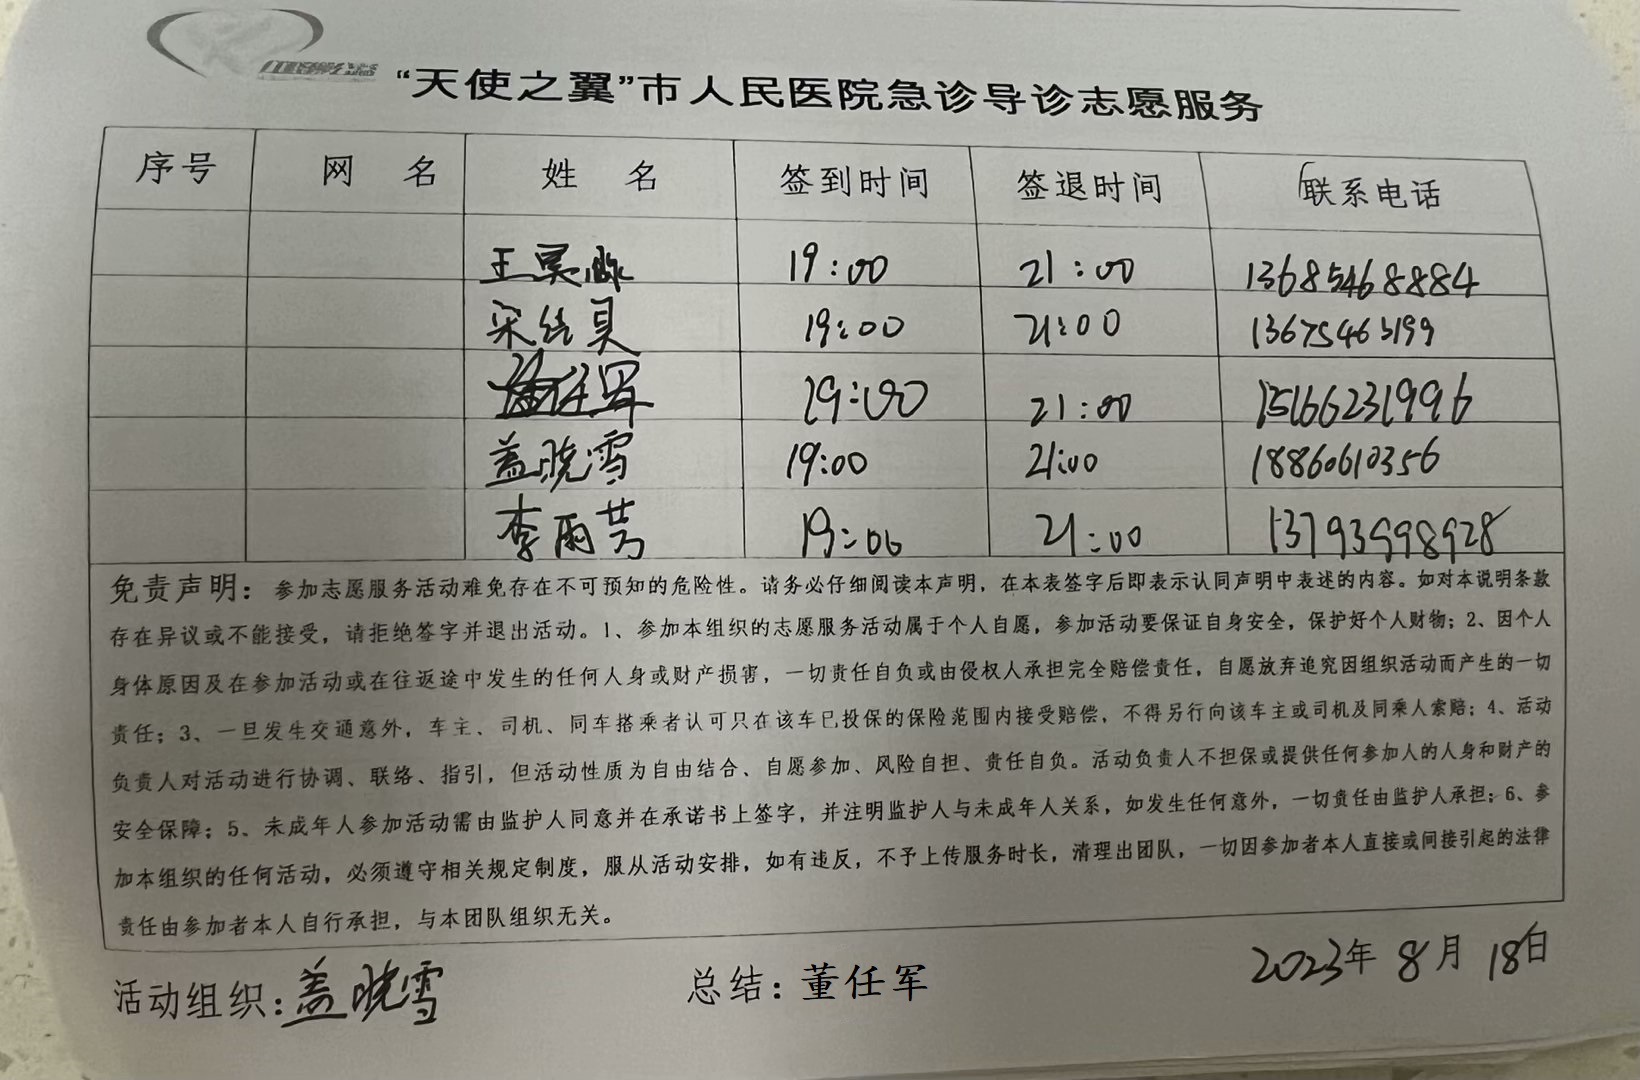 “天使之翼”市人民医院急诊导诊志愿服务
序号 网 名 姓 名 签到时间 签退时间 联系电话
王昊 19:00 21:00 13685468884
宋 贝 19:00 21:00 13675463199
任军 19:00 21:00 15166231996
盖晓雪 19:00 21:00 18860610356
李雨芳 19:00 21:00 13793998928
免责声明：参加志愿服务活动难免存在不可预知的危险性。请务必仔细阅读本声明，在本表签字后即表示认同声明中表述的内容。如对本说明条款
存在异议或不能接受，请拒绝签字并退出活动。1、参加本组织的志愿服务活动属于个人自愿，参加活动要保证自身安全，保护好个人财物；2、因个人
身体原因及在参加活动或在往返途中发生的任何人身或财产损害，一切责任自负或由侵权人承担完全赔偿责任，自愿放弃追究因组织活动而产生的一切
责任；3、一旦发生交通意外，车主、司机、同车搭乘者认可只在该车已投保的保险范围内接受赔偿，不得另行向该车主或司机及同乘人索赔；4、活动
负责人对活动进行协调、联络、指引，但活动性质为自由结合、自愿参加、风险自担、责任自负。活动负责人不担保或提供任何参加人的人身和财产的
安全保障；5、未成年人参加活动需由监护人同意并在承诺书上签字，并注明监护人与未成年人关系，如发生任何意外，一切责任由监护人承担；6、参
加本组织的任何活动，必须遵守相关规定制度，服从活动安排，如有违反，不予上传服务时长，清理出团队，一切因参加者本人直接或间接引起的法律
责任由参加者本人自行承担，与本团队组织无关。
活动组织：盖晓雪 总结：董任军 2023年 8月 18日